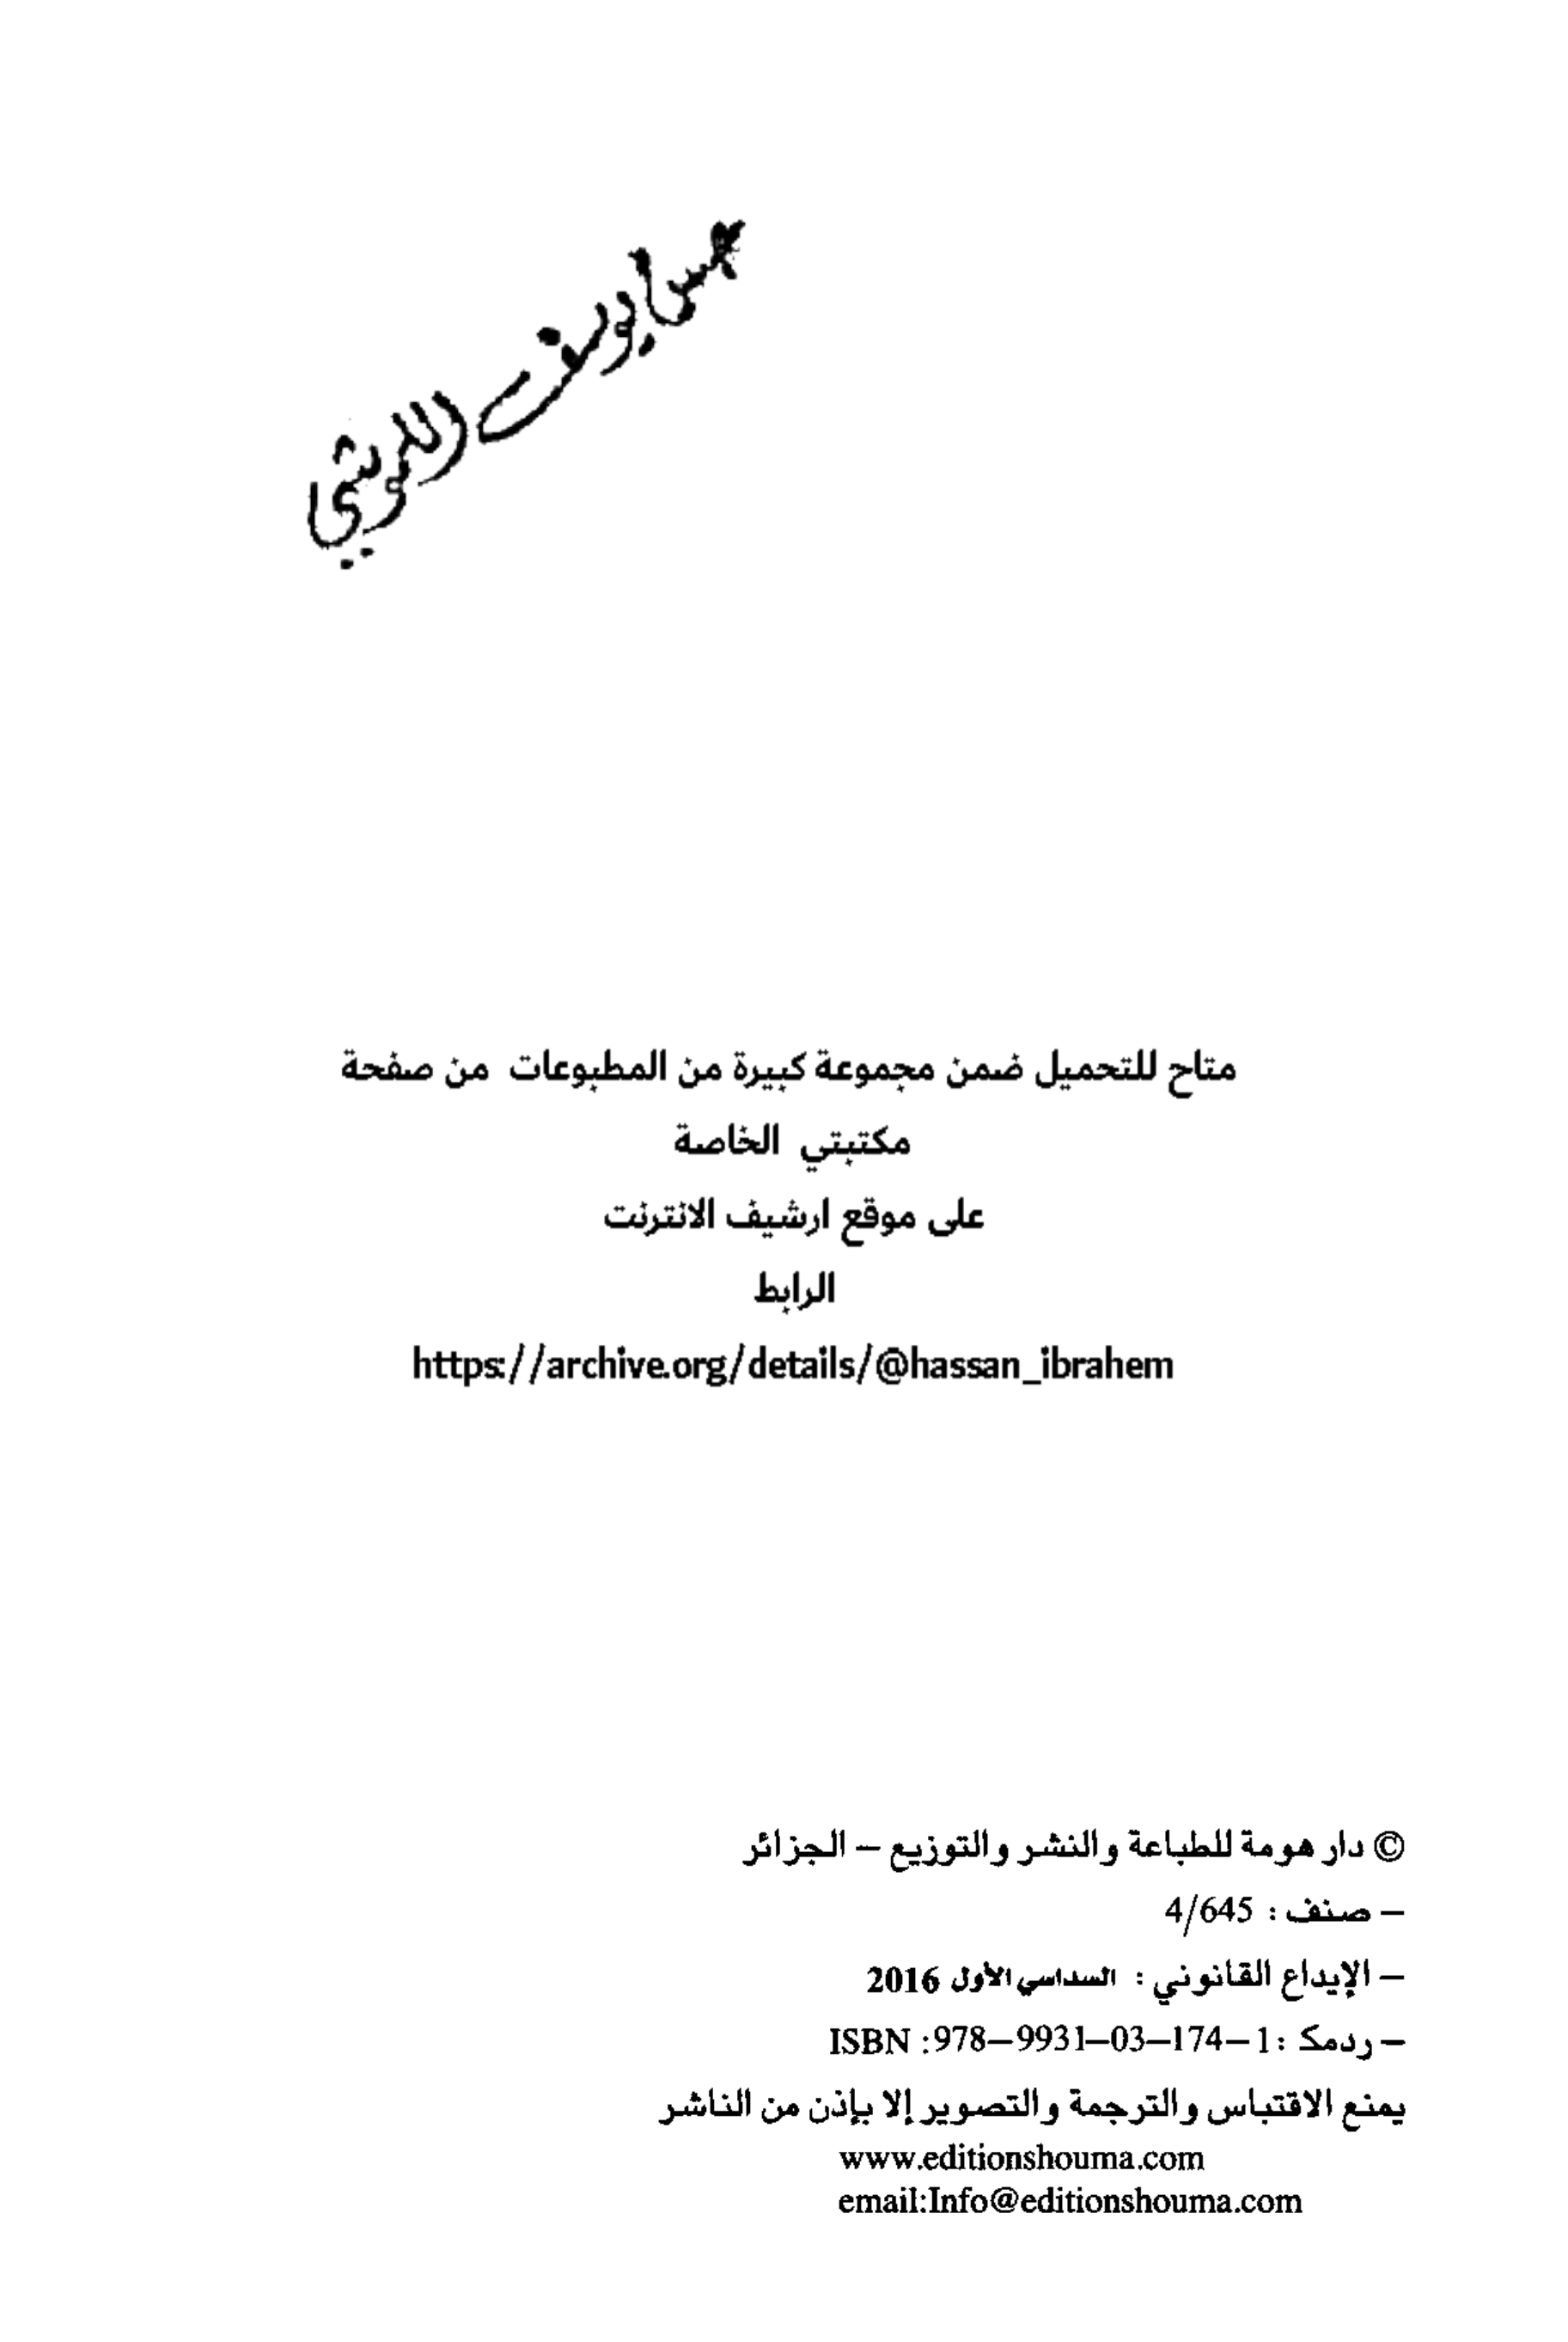 يوسف
متاح للتحميل ضمن مجموعة كبيرة من المطبوعات من صفحة
مكتبتي الخاصة
على موقع ارشيف الانترنت
الرابط
https://archive.org/details/@hassan_ibrahem
© دار هومة للطباعة والنشر والتوزيع – الجزائر
– صنف : 4/645
– الإيداع القانوني : السداسي الأول 2016
– ردمك :1–174–03–9931–978: ISBN
يمنع الاقتباس والترجمة والتصوير إلا بإذن من الناشر
www.editionshouma.com
email:Info@editionshouma.com